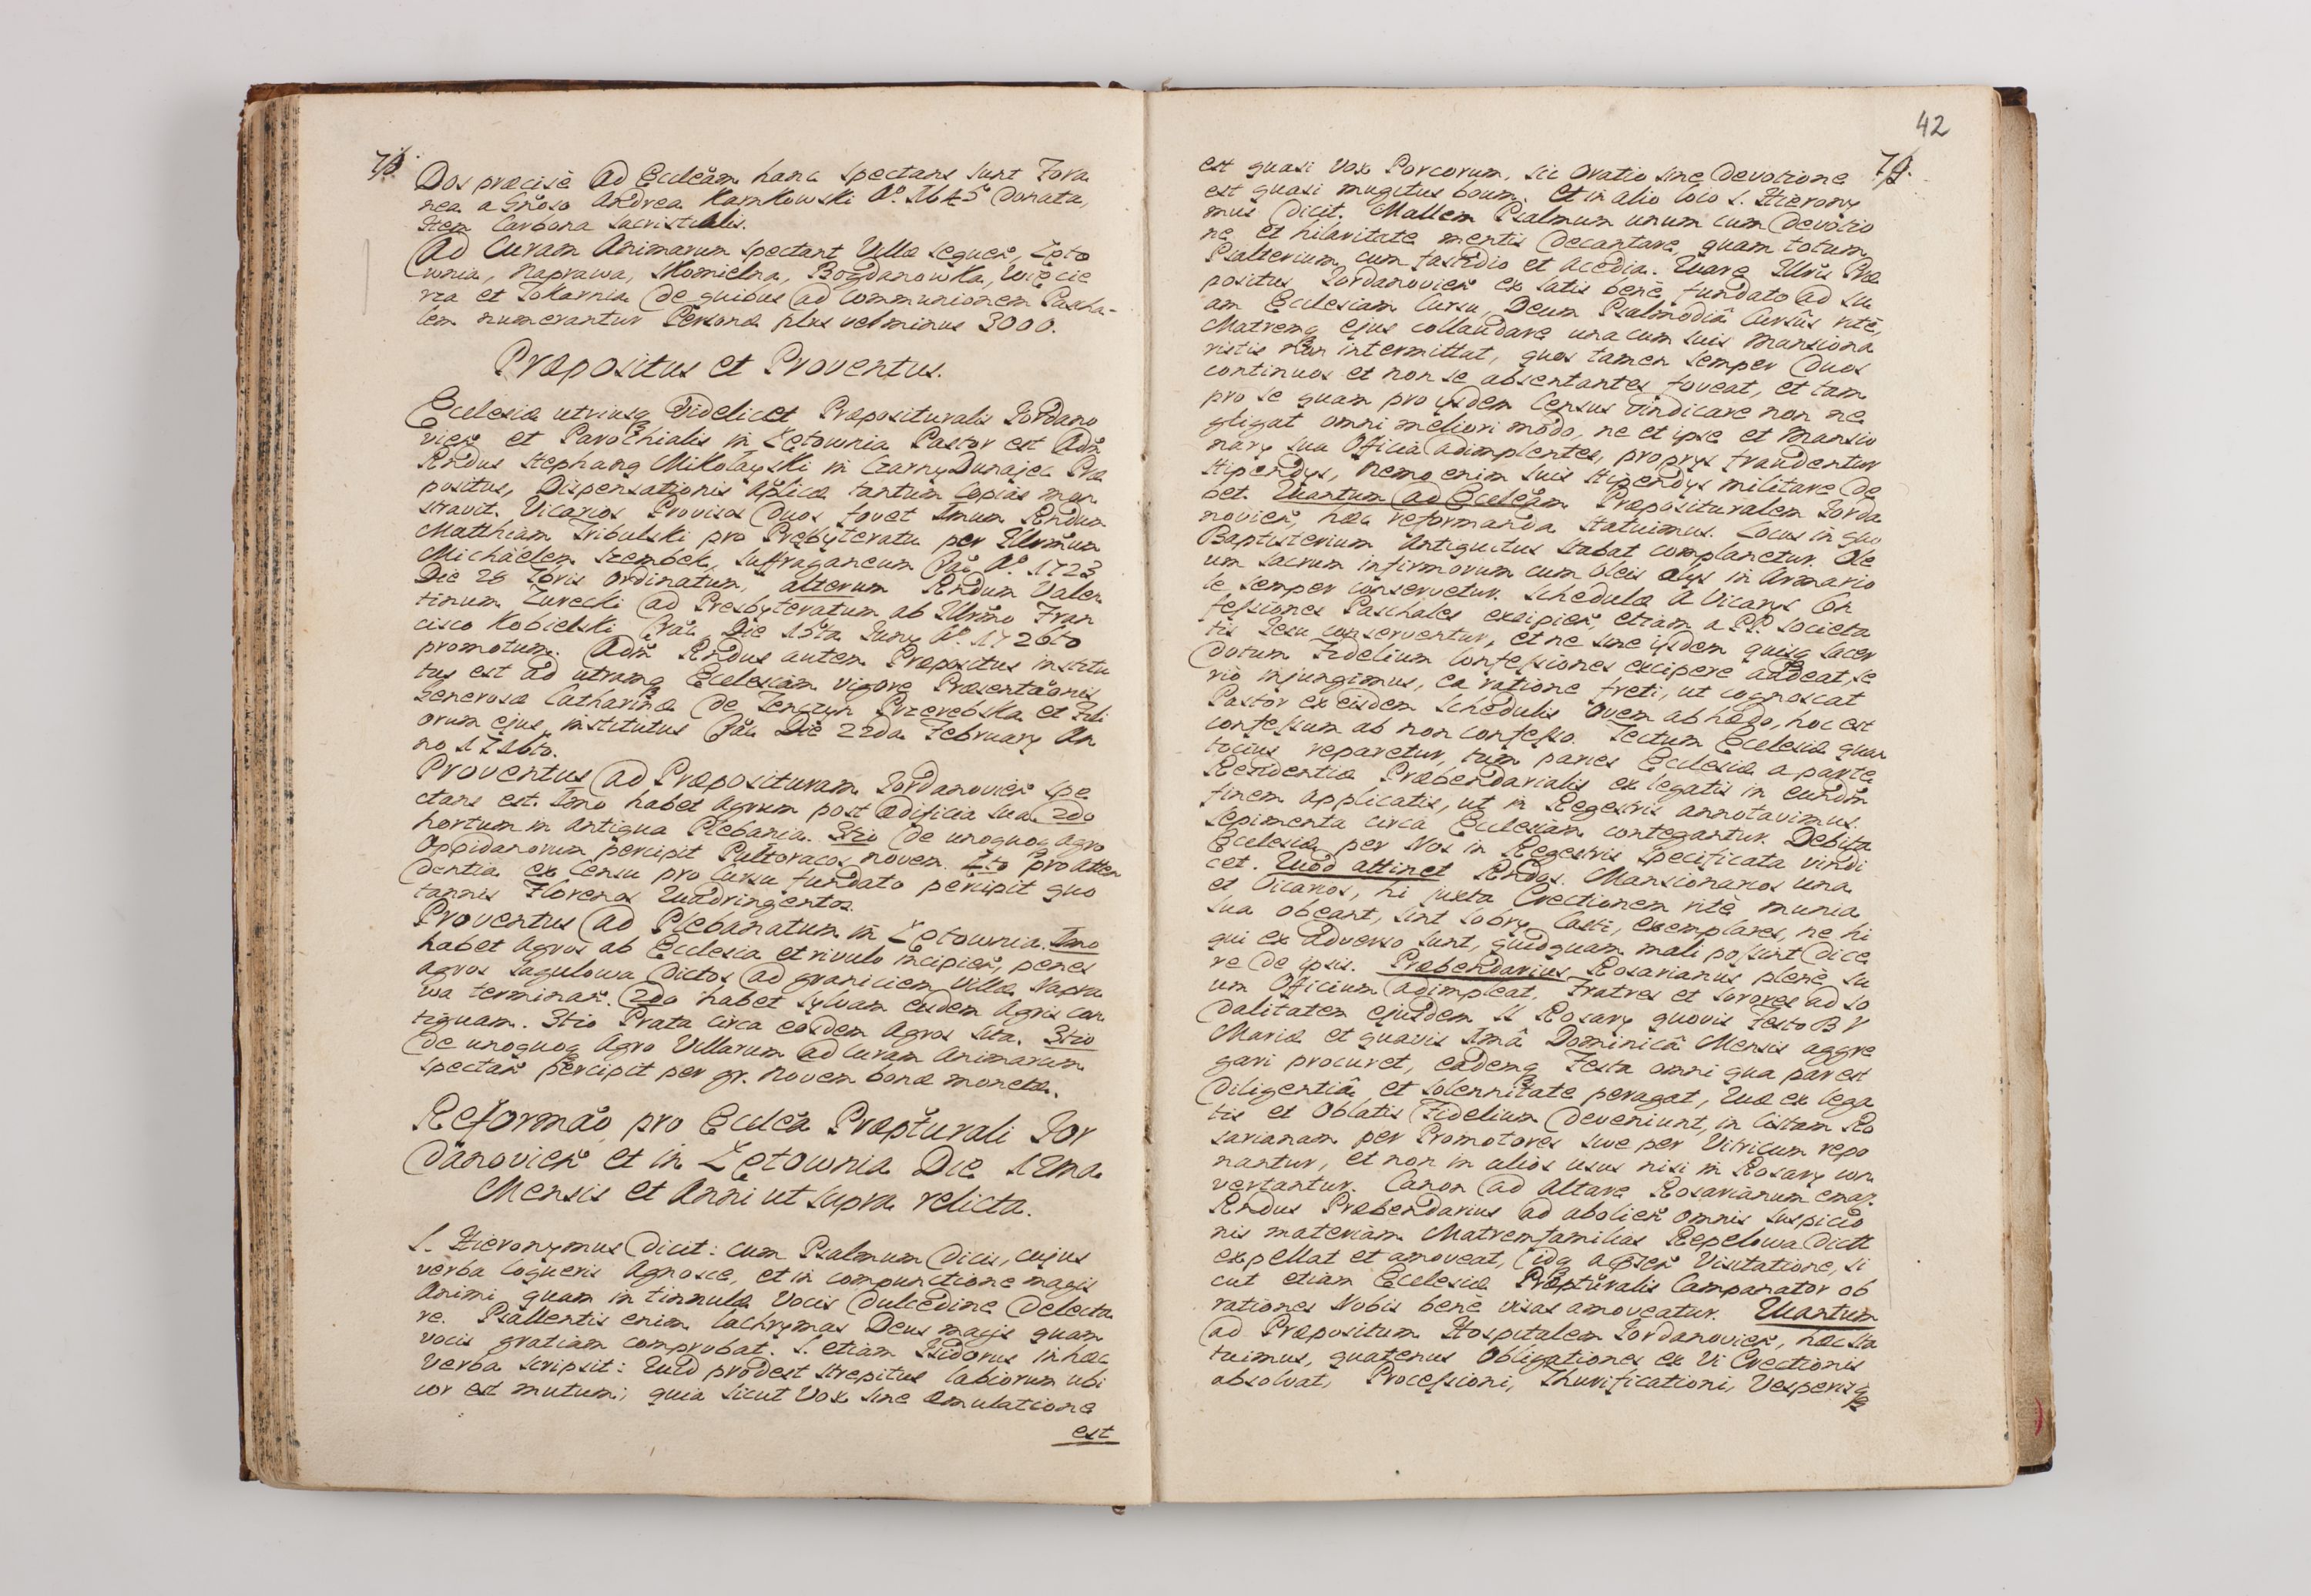 78.
Dos præcisè ad Eccleam hanc spectans sunt Fora
nea a Gnoso Andrea Kamkowski Ao. 1645 donata,
Item Carbona Sacristialis.
Ad Curam Animarum spectant Villæ sequen, Łęto
wnia, Naprawa, Skomielna, Bogdanowka, Więcie
rza et Tokarnia de quibus ad Communionem Pascha-
lem numerantur Personæ plus vel minus 3000.
Præpositus et Proventus.
Ecclesiæ utriusq Videlicet Præposituralis Jordano
vien et Parochialis in Łętownia Pastor est Adm
Rndus Stephang Mikołayski in Czarny Dunajec Præ
positus, Dispensationis Aplicæ tantum Copias mon
stravit. Vicarios Provisos duos fovet Imum Rndum
Matthiam Tribulski pro Presbyteratu per Illrmum
Michaelem Szembek, Suffraganeum Crac Ao. 1723
Die 28 7bris ordinatum, alterum Rndum Valen
tinum Zurecki ad Presbyteratum ab Illrmo Fran
cisco Kobielski Crac Die 15ta Juny Ao. 1726to
promotum. Adm Rndus autem Præpositus institu
tus est ad utramq Ecclesiam vigore Præsentaonis
Generosæ Catharinæ de Tenczyn Przerebska et Fili
orum ejus, institutus Crac Die 22da February An
no 1716to.
Proventus ad Præposituram Jordanovien spe
ctans est. Imo habet Agrum post ædificia sua. 2do
hortum in antiqua Plebania. 3tio de unoquoq agro
Oppidanorum percipit Pultoracos novem. 4.to pro atten
dentia ex Censu pro Cursu fundato percipit quo
tannis Florenos Quadringentos.
Proventus ad Plebanatum in Łętownia. Imo
habet Agros ab Ecclesia et rivulo incipien, penes
agros Sagulowa dictos ad graniciem Villæ Napra
wa terminan. 2do habet Sylvam eisdem Agris con
tiguam. 3tio Prata circa eosdem Agros sita. 3tio
de unoquoq Agro Villarum ad Curam Animarum
spectan percipit per gr. novem bonæ monetæ.
Reformao pro Ecclea Præpturali Jor
danovien et in Łętownia Die 12ma
Mensis et Anni ut supra relicta.
S. Hieronymus dicit: cum Psalmum dicis, cujus
verba loqueris agnosce, et in compunctione magis
Animi quam in tinnulæ Vocis dulcedine delecta
re. Psallentis enim lachrymas Deus magis quam
vocis gratiam comprobat. S. etiam Isidorus in hæc
verba scripsit: Quid prodest strepitus labiorum ubi
cor est mutum; quia sicut Vox sine æmulatione
est
42
79.
est quasi Vox Porcorum, sic oratio sine devotione
est quasi mugitus boum. Et in alio loco S. Hierony
mus dicit. Mallem Psalmum unum cum devotio
ne et hilaritate mentis decantare, quam totum
Psalterium cum fastidio et Acedia. Quare Illris Præ
positus Jordanovien ex satis benè fundato ad su
am Ecclesiam Cursu, Deum Psalmodiâ Cursûs ritè,
Matremq ejus collaudare una cum suis Mansiona
ristis non intermittat, quos tamen semper duos
continuos et non se absentantes foveat, et tam
pro se quam pro ijsdem Census vindicare non ne
gligat omni meliori modo, ne et ipse et Mansio
nary sua Officia adimplentes, proprys fraudentur
stipendys, nemo enim suis stipendys militare de
bet. Quantum ad Eccleam Præposituralem Jorda
novien, hæc reformanda statuimus. Locus in quo
Baptisterium antiquitus stabat complanetur. Ole
um Sacrum infirmorum cum Oleis alys in Armario
lo semper conservetur. Schedulæ a Vicarys Con
fessiones Paschales excipien, etiam a PP. Societa
tis Jesu conserventur, et ne sine ijsdem quisq Sacer
dotum Fidelium Confessiones excipere audeat, se
rio injungimus, ea ratione freti, ut cognoscat
Pastor ex eisdem Schedulis ovem ab hædo, hoc est
confessum ab non confesso. Tectum Ecclesiæ quan
tocius reparetur, tum paries Ecclesiæ a parte
Residentiæ Præbendarialis ex legatis in eundm
finem applicatis, ut in Regestris annotavimus.
Sepimenta circa Ecclesiam contegantur. Debita
Ecclesiæ per Nos in Regestris specificata vindi
cet. Quod attinet Rndos. Mansionarios una
et Vicarios, hi juxta Erectionem ritè munia
sua obeant, sint sobry, Casti, exemplares, ne hi
qui ex adverso sunt, quidquam mali possint dice
re de ipsis. Præbendarius Rosarianus plenè su
um Officium adimpleat. Fratres et Sorores ad So
dalitatem ejusdem S Rosary quovis Festo B V
Mariæ et quavis Imâ Dominicâ Mensis aggre
gari procuret, eademq Festa omni qua par est
diligentiâ et solennitate peragat, Quæ ex lega
tis et Oblatis Fidelium deveniunt, in Cistam Ro
sarianam per Promotores sive per Vitricum repo
nantur, et non in alios usus nisi in Rosary con
vertantur. Canon ad Altare Rosarianum emat.
Rndus Præbendarius ad abolien omnis suspicio
nis materiam Matremfamilias Repelowa dictt
expellat et amoveat, idq a psen Visitatione, si
cut etiam Ecclesiæ Præpturalis Campanator ob
rationes Nobis benè visas amoveatur. Quantum
ad Præpositum Hospitalem Jordanovien, hæc sta
tuimus, quatenus Obligationes ex Vi Erectionis
absolvat, Processioni, Thurificationi, Vesperisq